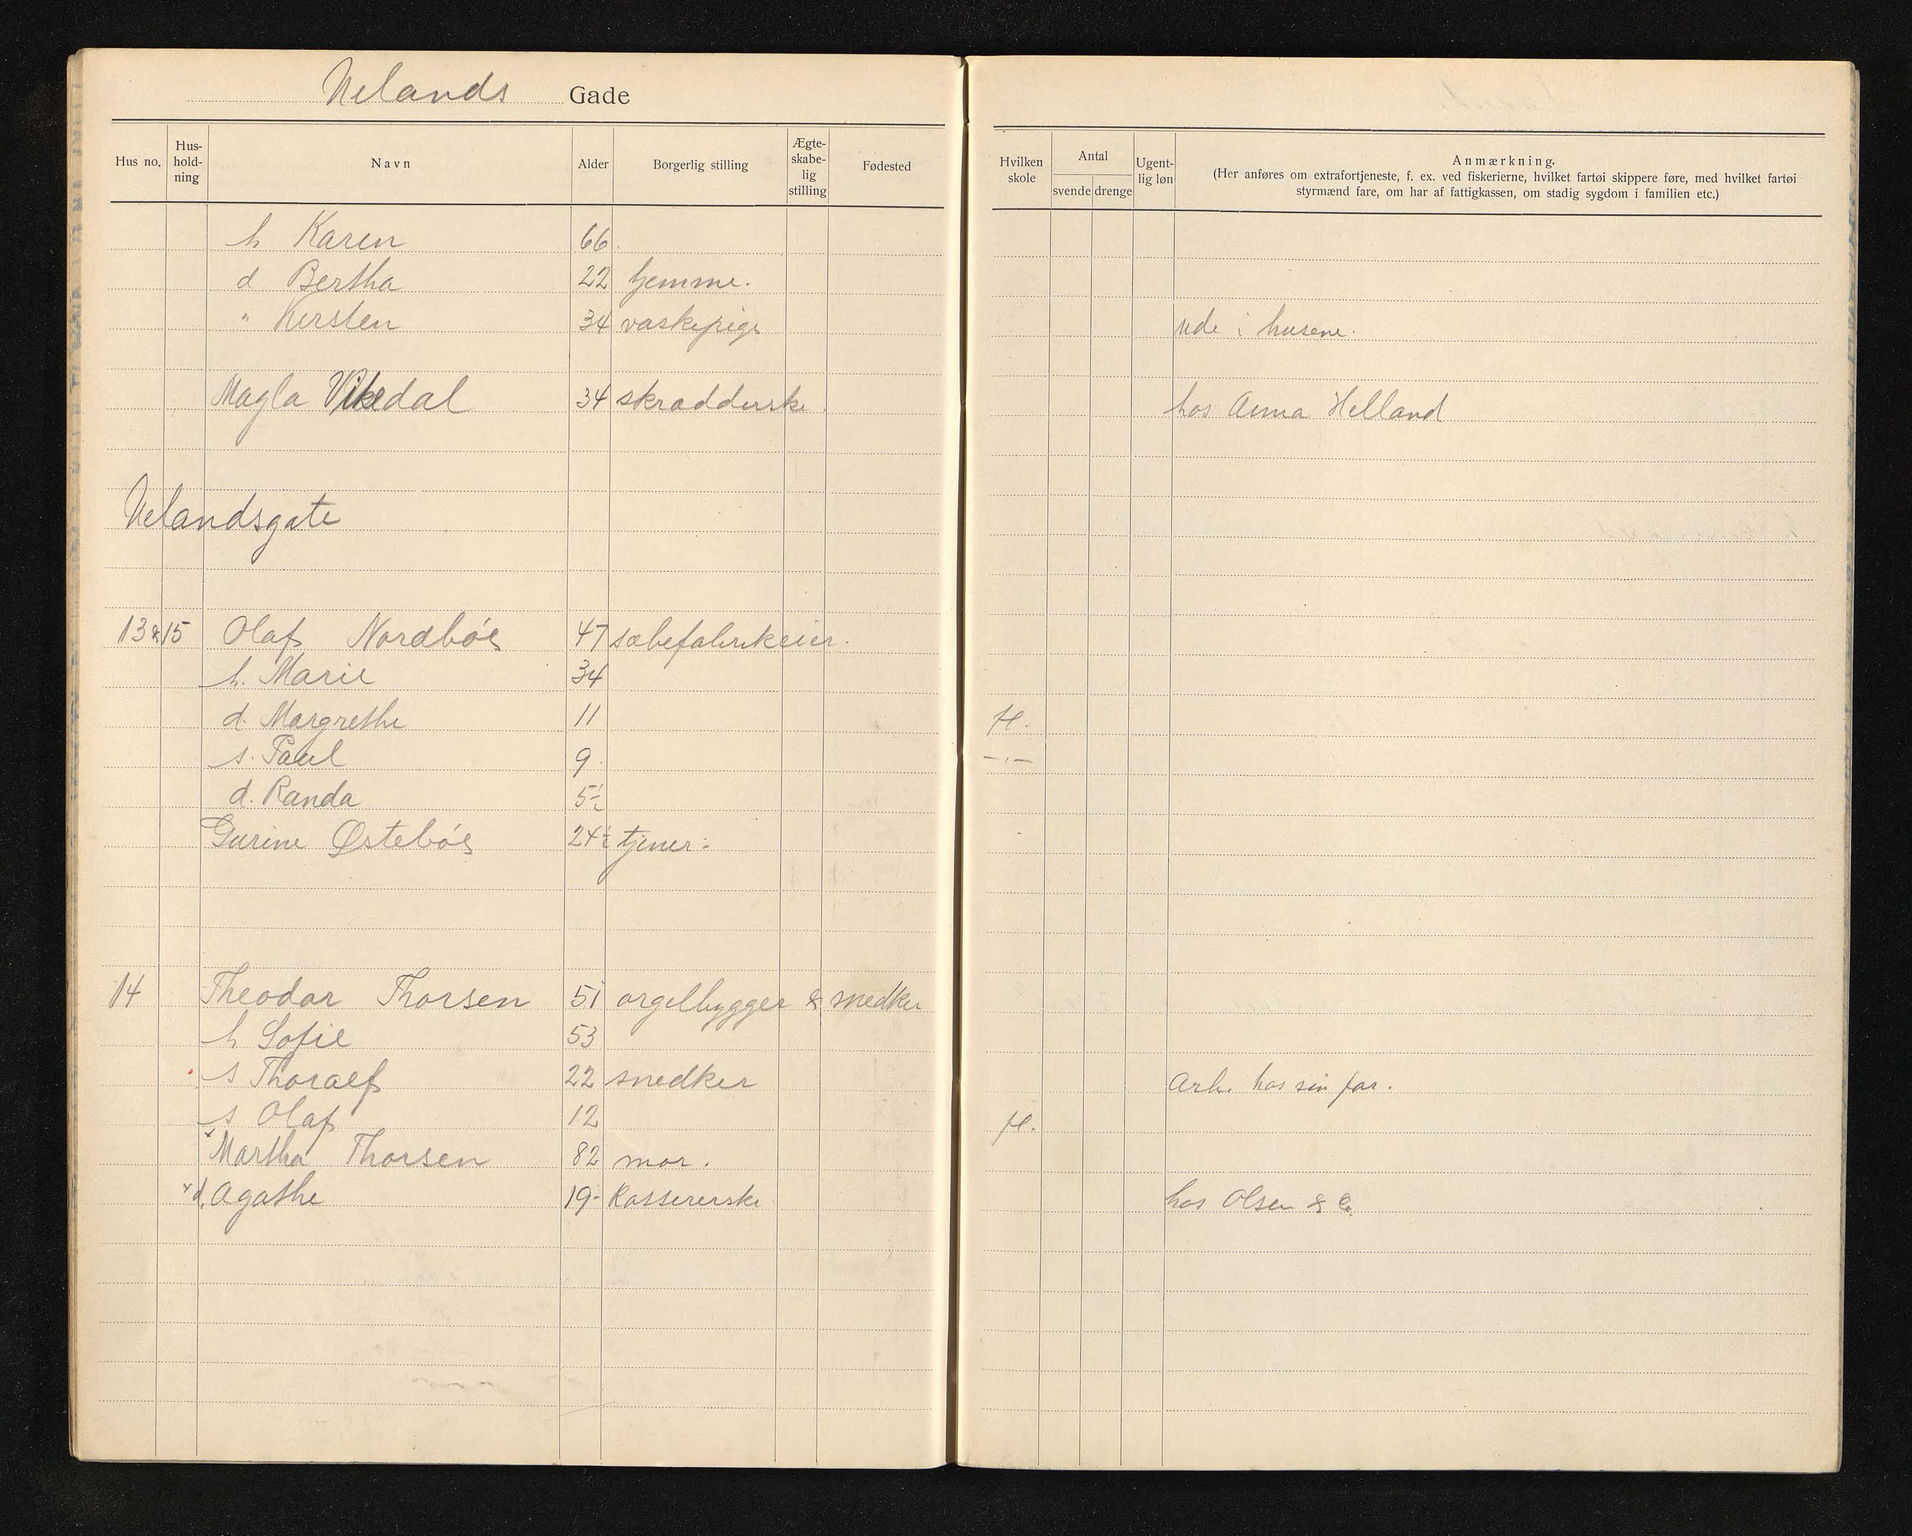 Nelands Gade
Hus no. Hus-hold-ning Navn Alder Borgerlig stilling Ægte-skabe-lig stilling Fødested Hvilken skole Antal svende drenge Ugent-lig løn Anmærkning.
(Her anføres om extrafortjeneste, f. ex. ved fiskerierne, hvilket fartøi skippere føre, med hvilket fartøi
styrmænd fare, om har af fattigkassen, om stadig sygdom i familien etc.)
h Karen 66
d Bertha 22 hjemme.
" Kirsten 34 vaskepige ude i husene.
Magla Vikedal 34 skrædderske. hos Anna Helland
Nelandsgate
13 & 15 Olaf Nordbøe 47 sæbefabrikeier.
h. Marie 34
d. Margrethe 11 H.
s. Paul 9. -"-
d. Randa 5½
Gurine Østebøe 24½ tjener.
14 Theodor Thorsen 51 orgelbygger & snedker
h Sofie 53
s Thoralf 22 snedker Arb. hos sin far.
s Olaf 12 H.
x Martha Thorsen 82 mor.
x d. Agathe 19 Kassererske hos Olsen & Co.